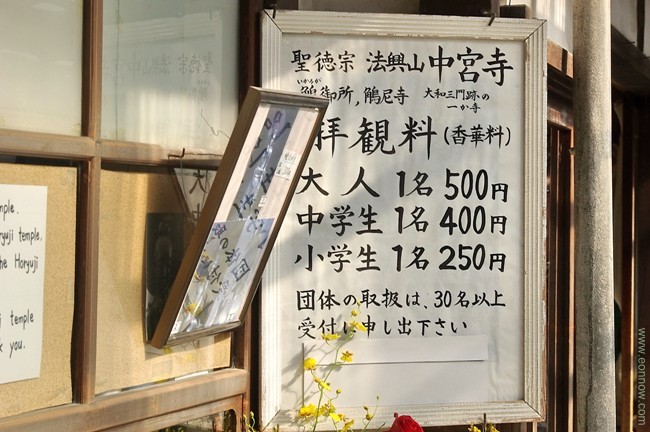 聖徳宗 法興山中宮寺
いかるが
御所,鵤尼寺 大和三門跡の
一か寺
拝観料(香華料)
大人 1名 500円
中学生 1名 400円
小学生 1名 250円
団体の取扱は、30名以上
受付に申し出下さい
mple.
ryuji temple.
the Horyuji
i temple
k you.
www.eonnow.com